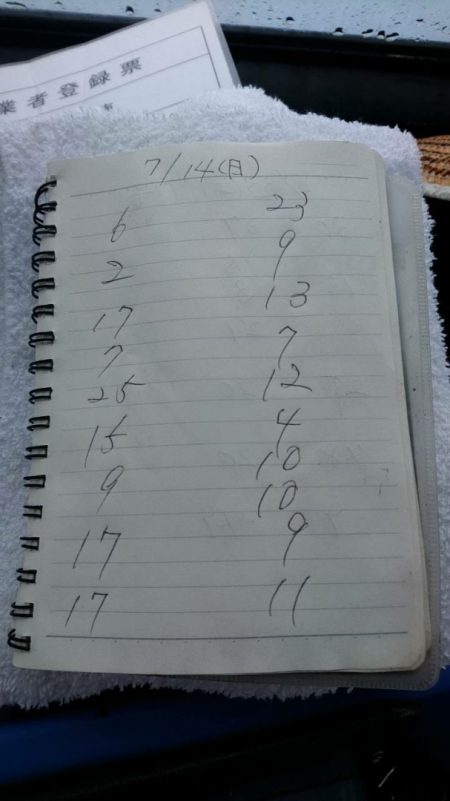 業者登録票
7/14(日)
6 23
2 9
17 13
7 7
25 12
15 4
9 10
17 10
17 9
11